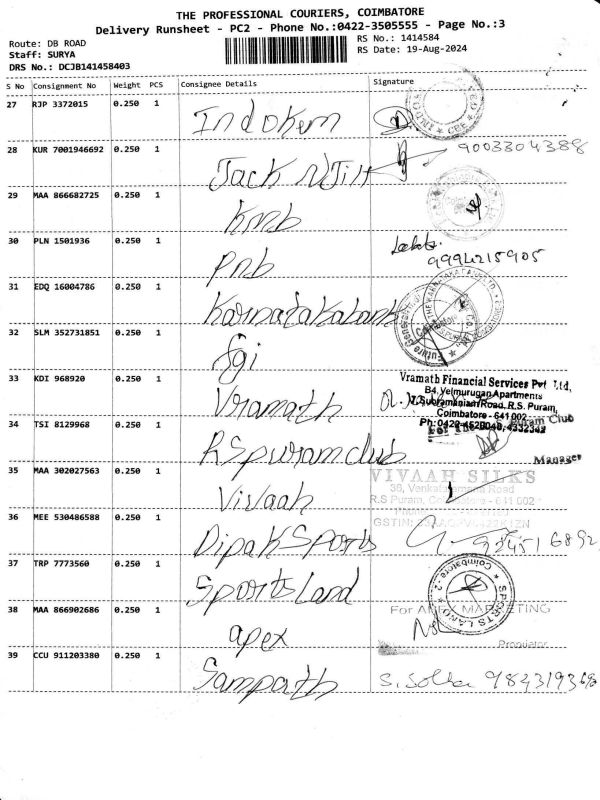 THE PROFESSIONAL COURIERS, COIMBATORE
Delivery Runsheet - PC2 - Phone No.:0422-3505555 - Page No.:3
Route: DB ROAD
RS No.: 1414584
Staff: SURYA
RS Date: 19-Aug-2024
DRS No.: DCJB141458403
S No Consignment No Weight PCS Consignee Details Signature
27 RJP 3372015 0.250 1 Indokem
28 KUR 7001946692 0.250 1 Jack N Jill 9003304388
29 MAA 866682725 0.250 1 kmb
30 PLN 1501936 0.250 1 pnb
9994215905
31 EDQ 16004786 0.250 1 Karnatakabank
32 SLM 352731851 0.250 1 fgi
33 KDI 968920 0.250 1 Vramath
Vramath Financial Services Pvt Ltd,
B4, Velmurugan Apartments
T.Subramaniam Road, R.S. Puram,
Coimbatore - 641 002
Ph: 0422-4520040, 4332342
34 TSI 8129968 0.250 1 RSpuram club
Manager
35 MAA 302027563 0.250 1 Vivaah
VIVAAH SILKS
38, Venkataramana Road
R.S.Puram, Coimbatore - 641 002
36 MEE 530486588 0.250 1 Dipak Sports
37 TRP 7773560 0.250 1 Sports Land
SPORTS LAND Coimbatore - 2
38 MAA 866902686 0.250 1 apex
For APEX MARKETING
Proprietor
39 CCU 911203380 0.250 1 Sampath